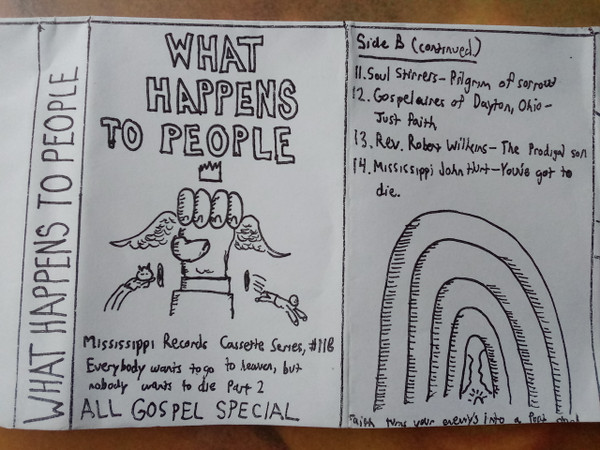 WHAT HAPPENS TO PEOPLE
WHAT
HAPPENS
TO PEOPLE
Mississippi Records Cassette Series, #116
Everybody wants to go to heaven, but
nobody wants to die Part 2
ALL GOSPEL SPECIAL
Side B (continued)
11. Soul Stirrers - Pilgrim of sorrow
12. Gospelaires of Dayton, Ohio -
Just faith
13. Rev. Robert Wilkins - The Prodigal son
14. Mississippi John Hurt - You've got to
die.
Faith turns your enemys into a